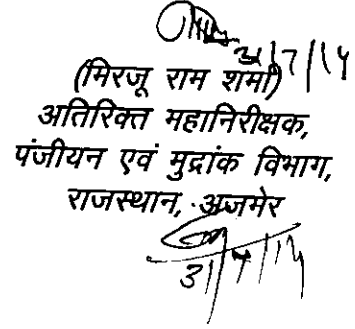 31/7/14
(मिरजू राम शर्मा)
अतिरिक्त महानिरीक्षक,
पंजीयन एवं मुद्रांक विभाग,
राजस्थान, अजमेर
31/7/14